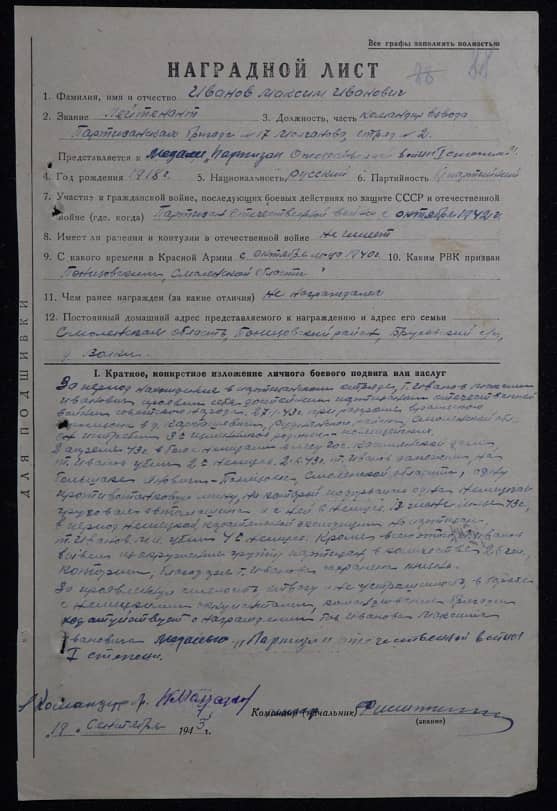 Все графы заполнять полностью
88
НАГРАДНОЙ ЛИСТ
1. Фамилия, имя и отчество Иванов Максим Иванович
2. Звание Лейтенант 3. Должность, часть командир взвода
Партизанская бригада №17 отряд №2.
Представляется к медали „Партизан Отечественной войны I степени".
4. Год рождения 1918 г. 5. Национальность русский 6. Партийность
7. Участие в гражданской войне, последующих боевых действиях по защите СССР и отечественной
войне (где, когда) Партизан Отечественной войны с октября 1942 г.
8. Имеет ли ранения и контузии в отечественной войне не имеет
9. С какого времени в Красной Армии с октября 1940 г. 10. Каким РВК призван
Понизовским, Смоленской области
11. Чем ранее награжден (за какие отличия) не награждался
12. Постоянный домашний адрес представляемого к награждению и адрес его семьи
Смоленская область, Понизовский район, с/с,
д.
ДЛЯ ПОДШИВКИ
I. Краткое, конкретное изложение личного боевого подвига или заслуг
За период нахождения в партизанском отряде, т. Иванов Максим
Иванович проявил себя достойным партизаном отечественной
войны советского народа. 27.1.43 г. при разгроме вражеского
гарнизона в д. Руднянского района, Смоленской обл.
он истребил 3х
В апреле 43 г. в бою с немцами
т. Иванов убил 2х немцев. т. Иванов заложил на
большаке Понизовье, Смоленской области, одну
противотанковую мину, на которой подорвалась одна немецкая
грузовая автомашина и с ней немцев. В июне 43 г.,
в период немецкой карательной экспедиции на партизан,
т. Иванов убил 4х немцев. Кроме всего этого Иванов
вывел из окружения группу партизан в количестве 26 чел.
которым, благодаря т. Иванова сохранена жизнь.
За проявленную смелость, отвагу и не устрашимость в борьбе
с немецкими оккупантами, командование бригады
ходатайствует о награждении тов. Иванова Максима
Ивановича медалью „Партизан отечественной войны"
I степени.
Командир
Командир (начальник)
(звание)
19. Сентября 1943 г.